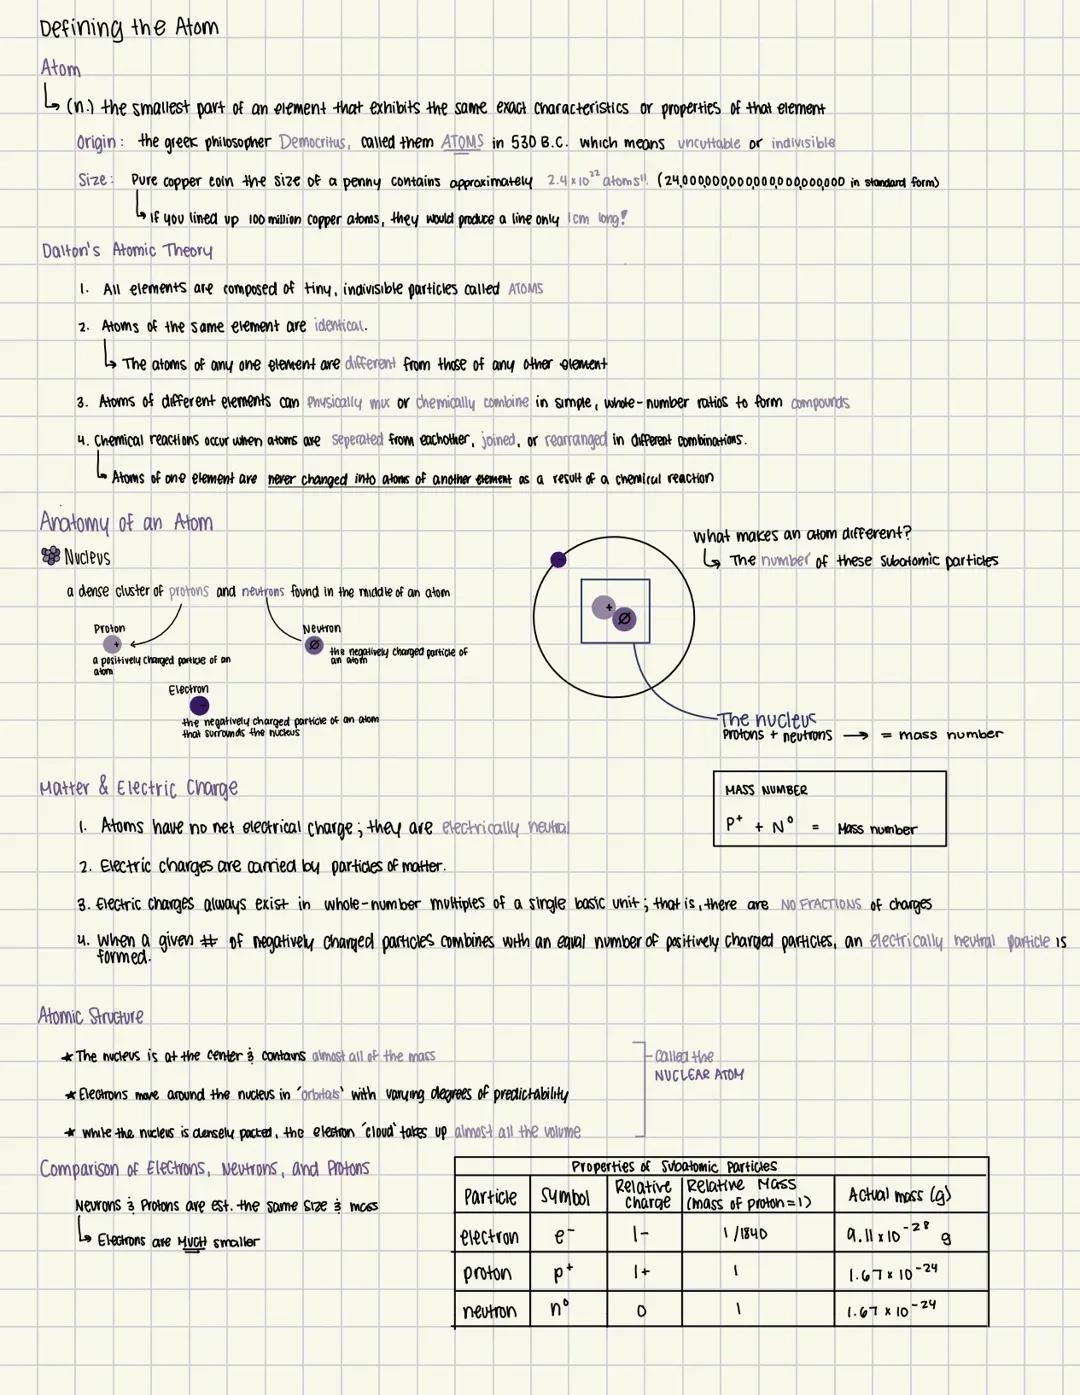 Defining the Atom
Atom
(n.) the smallest part of an element that exhibits the same exact characteristics or properties of that element
Origin: the greek philosopher Democritus, called them ATOMS in 530 B.C. which means uncuttable or indivisible
Size: Pure copper coin the size of a penny contains approximately 2.4 x 10²² atoms!! (24,000,000,000,000,000,000,000 in standard form)
If you lined up 100 million copper atoms, they would produce a line only 1cm long!
Dalton's Atomic Theory
1. All elements are composed of tiny, indivisible particles called ATOMS
2. Atoms of the same element are identical.
The atoms of any one element are different from those of any other element
3. Atoms of different elements can physically mix or chemically combine in simple, whole-number ratios to form compounds
4. Chemical reactions occur when atoms are seperated from eachother, joined, or rearranged in different combinations.
Atoms of one element are never changed into atoms of another element as a result of a chemical reaction
Anatomy of an Atom
Nucleus
a dense cluster of protons and neutrons found in the middle of an atom
Proton
+
a positively charged particle of an
atom
Neutron
Ø
the negatively charged particle of
an atom
Electron
-
the negatively charged particle of an atom
that surrounds the nucleus
What makes an atom different?
The number of these subatomic particles
+
Ø
The nucleus
Protons + neutrons → = mass number
MASS NUMBER
P⁺ + N⁰ = Mass number
Matter & Electric Charge
1. Atoms have no net electrical charge; they are electrically neutral
2. Electric charges are carried by particles of matter.
3. Electric charges always exist in whole-number multiples of a single basic unit; that is, there are NO FRACTIONS of charges
4. When a given # of negatively charged particles combines with an equal number of positively charged particles, an electrically neutral particle is
formed.
Atomic Structure
* The nucleus is at the center & contains almost all of the mass
* Electrons move around the nucleus in 'orbitals' with varying degrees of predictability
* while the nucleus is densely packed, the electron 'cloud' takes up almost all the volume
Called the
NUCLEAR ATOM
Comparison of Electrons, Neutrons, and Protons
Neurons & Protons are est. the same size & mass
Electrons are MUCH smaller
Properties of Subatomic Particles
Particle Symbol Relative Charge Relative Mass (mass of proton=1) Actual mass (g)
electron e⁻ 1- 1/1840 9.11 x 10⁻²⁸ g
proton p⁺ 1+ 1 1.67 x 10⁻²⁴
neutron n⁰ 0 1 1.67 x 10⁻²⁴